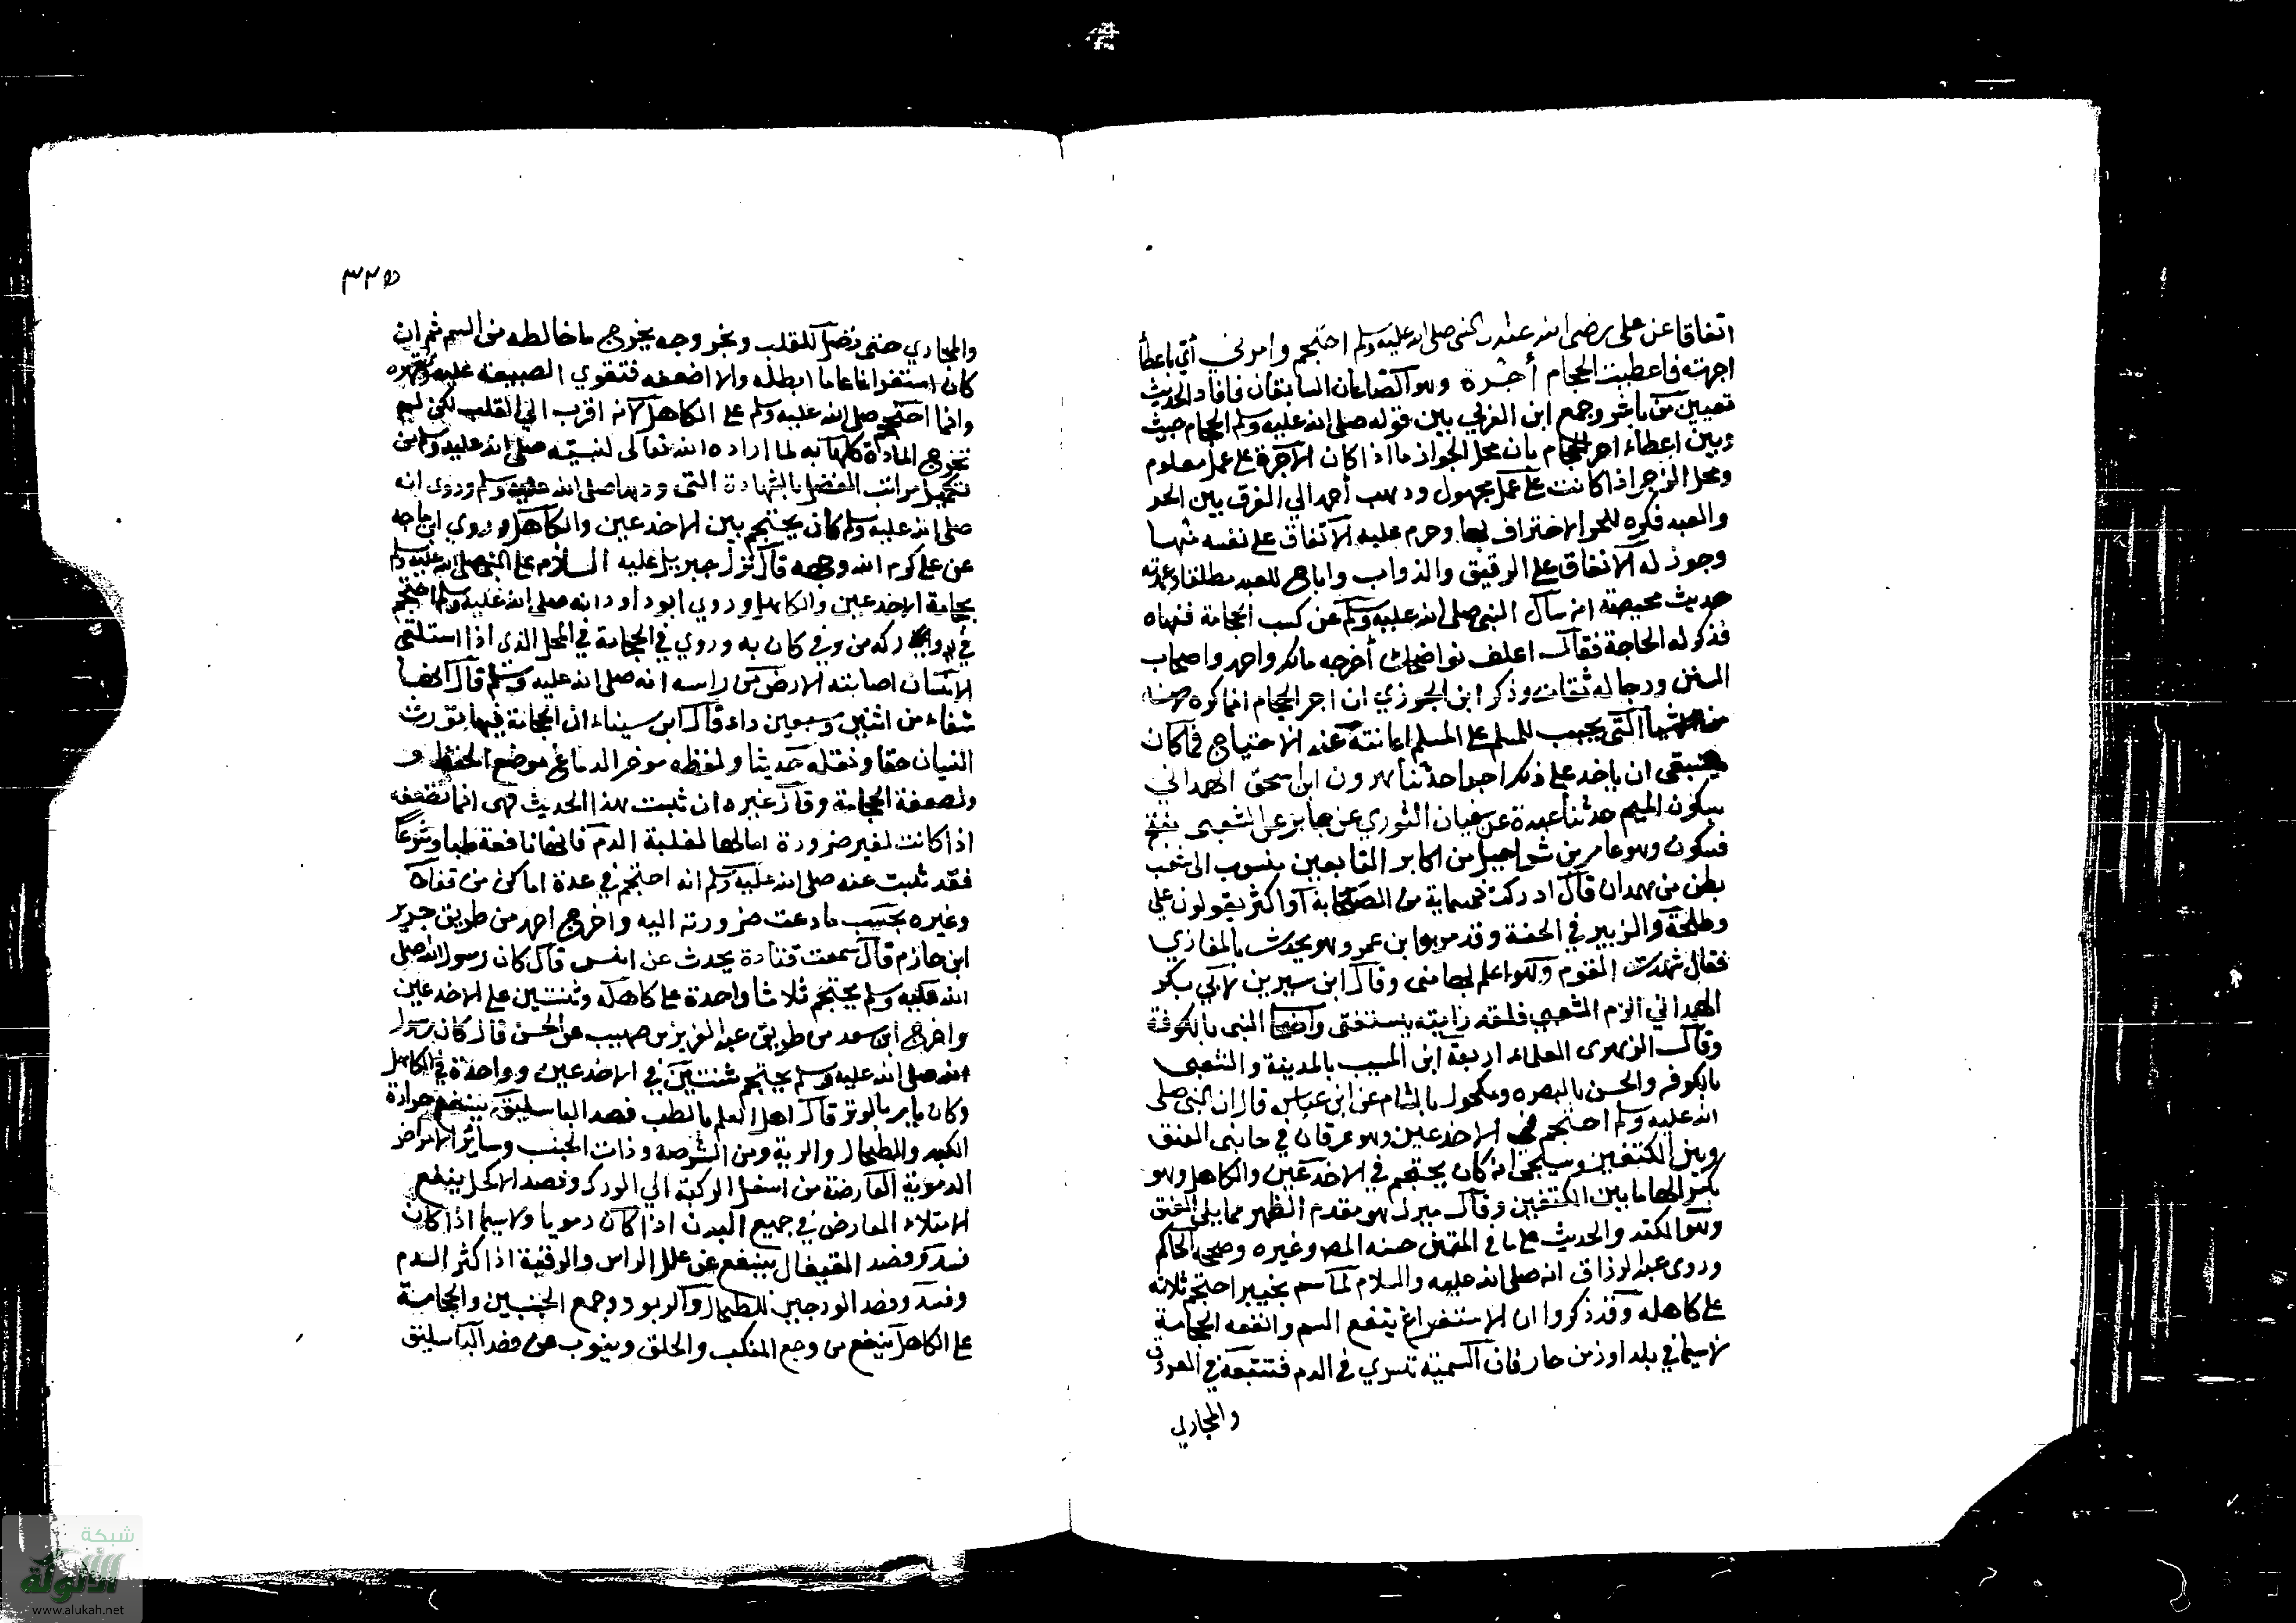 اتفاقا عن علي رضي الله عنه ان النبي صلى الله عليه وسلم احتجم وامرني أي باعطاء
اجرته فاعطيت الحجام أجره وهو الصاعان السابقان فافاد الحديث
تعيين من باشر وجمع ابن العربي بين قوله صلى الله عليه وسلم كسب الحجام خبيث
وبين اعطاء اجر الحجام بان محل الجواز ما اذا كان الاجرة على عمل معلوم
ومحل الزجر اذا كانت على عمل مجهول وذهب أحمد الي الفرق بين الحر
والعبد فكره للحر الاحتراف بها وحرم عليه الانفاق على نفسه منها
وجوز له الانفاق على الرقيق والدواب واباح للعبد مطلقا وعمدته
حديث محيصة انه سأل النبي صلى الله عليه وسلم عن كسب الحجامة فنهاه
فذكر له الحاجة فقال اعلف نواضحك أخرجه مالك واحمد واصحاب
السنن ورجاله ثقات وذكر ابن الجوزي ان اجر الحجام انما كره لانه
من الاشيأ التي يجب للمسلم على المسلم اعانته عند الاحتياج فما كان
ينبغي ان ياخذ على ذلك اجرا حدثنا هرون ابن اسحق الهمداني
بسكون الميم حدثنا عبدة عن سفيان الثوري عن جابر عن الشعبي بفتح
فسكون وهو عامر بن شراحيل من اكابر التابعين منسوب الى شعب
بطن من همدان قال ادركت خمسماية من الصحابة أو اكثر يقولون علي
وطلحة والزبير في الجنة وقد مر به ابن عمر وهو يحدث بالمغازي
فقال شهدت القوم ولهو اعلم بها مني وقال ابن سيرين لابي بكر
الهذلي الزم الشعبي فلقد رايته يستفتى واصحاب النبي بالكوفة
وقال الزهري العلماء اربعة ابن المسيب بالمدينة والشعبي
بالكوفه والحسن بالبصره ومكحول بالشام عن ابن عباس قال ان النبي صلى
الله عليه وسلم احتجم في الاخدعين وهو عرقان في جانبي العنق
وبين الكتفين وسيجي انه كان يحتجم في الاخدعين والكاهل وهو
بكسر الهاء ما بين الكتفين وقال ميرك هو مقدم الظهر مما يلي العنق
وهو الكتد والحديث على ما في المتن حسنه المص وغيره وصححه الحاكم
وروى عبد الرزاق انه صلى الله عليه والسلام لما سم بخيبر احتجم ثلاثة
على كاهله وقد ذكروا ان الاستفراغ ينفع السم وانفعه الحجامة
لا سيما في بلد او زمن حار فان السمية تسري في الدم فتتبعه في العروق
والمجاري
٣٢٥
والمجاري حتى تصل للقلب وبخروجه يخرج ما خالطه من السم ثم ان
كان استفراغا عاما ابطله والا اضعفه فتقوي الطبيعة عليه وتقهره
وانما احتجم صلى الله عليه وسلم على الكاهل لانه اقرب الي القلب لكن لم
تخرج المادة كلها به لما اراده الله تعالى لنبيه صلى الله عليه وسلم من
تكميل مراتب الفضل بالشهادة التي ودها صلى الله عليه وسلم وروى انه
صلى الله عليه وسلم كان يحتجم بين الاخدعين والكاهل وروي ابن ماجه
عن علي كرم الله وجهه قال نزل جبريل عليه السلام على النبي صلى الله عليه وسلم
بحجامة الاخدعين والكاهل وروي ابو داود انه صلى الله عليه وسلم احتجم
في وركه من وثي كان به وروي في الحجامة في المحل الذي اذا استلقى
الانسان اصابته الارض من راسه انه صلى الله عليه وسلم قال انها
شفاء من اثنين وسبعين داء وقال ابن سيناء ان الحجامة فيها تورث
النسيان حقا ونقله حديثا ولفظه موخر الدماغ موضع الحفظ و
وتضعفه الحجامة وقال غيره ان ثبت هذا الحديث فهي انما تضعفه
اذا كانت لغير ضرورة اما لها لغلبة الدم فانها نافعة طبا وشرعا
فقد ثبت عنه صلى الله عليه وسلم انه احتجم في عدة اماكن من قفاه
وغيره بحسب ما دعت ضرورته اليه واخرج احمد من طريق جرير
ابن حازم قال سمعت قتادة يحدث عن انس قال كان رسول الله صلى
الله عليه وسلم يحتجم ثلاثا واحدة على كاهله وثنتين على الاخدعين
واخرج ابن سعد من طريق عبد العزيز بن صهيب عن الحسن قال كان رسول
الله صلى الله عليه وسلم يحتجم ثنتين في الاخدعين وواحدة في الكاهل
وكان يامر بالوتر قال اهل العلم بالطب فصد الباسليق ينفع حرارة
الكبد والطحال والرية ومن الشوصة وذات الجنب وسائر الامراض
الدموية العارضة من اسفل الركبة الي الورك وفصد الاكحل ينفع
الامتلاء العارض في جميع البدن اذا كان دمويا ولا سيما اذا كان
فسد وفصد القيفال ينفع من علل الراس والرقبة اذا كثر الدم
وفسد وفصد الودجين للطحال والربو ووجع الجنبين والحجامة
على الكاهل ينفع من وجع المنكب والحلق وينوب عن فصد الباسليق
شبكة
الألوكة
www.alukah.net